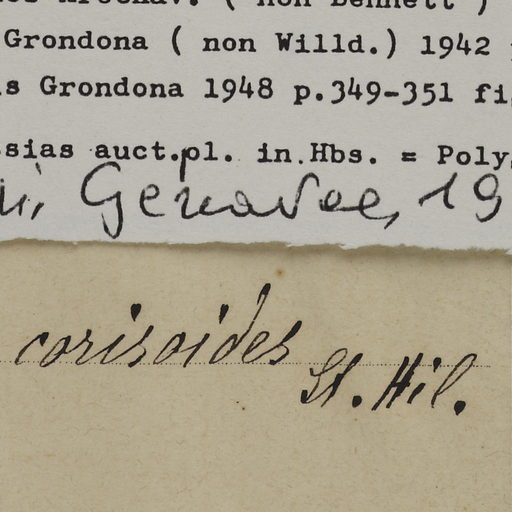 ( non Bennett )
Grondona ( non Willd.) 1942
s Grondona 1948 p.349-351 fi
sias auct.pl. in.Hbs. = Poly
i, Genavae, 19
corisoides
St. Hil.